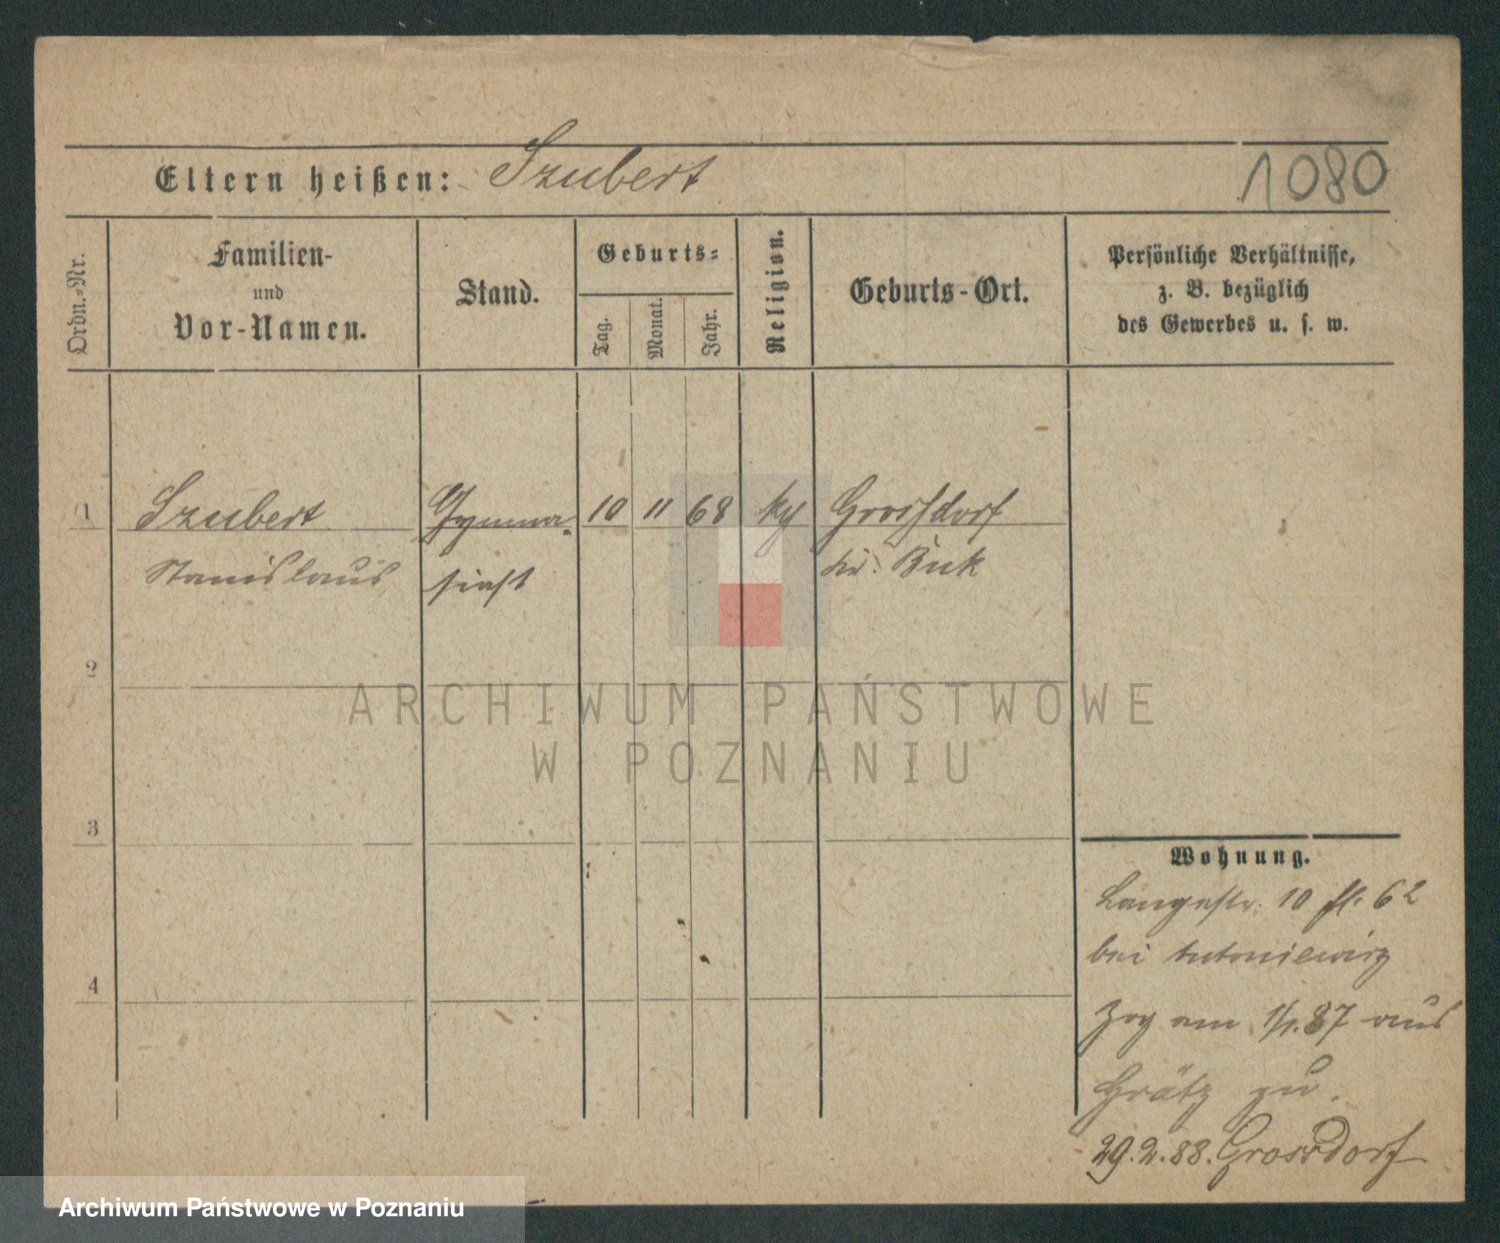 Eltern heißen: Szubert
1080
Ordn.-Nr.
Familien-
und
Vor-Namen.
Stand.
Geburts-
Tag.
Monat.
Jahr.
Religion.
Geburts-Ort.
Persönliche Verhältnisse,
z. B. bezüglich
des Gewerbes u. s. w.
1 Szubert Gymna- 10 11 68 Grossdorf
Stanislaus siast Kr. Buk
2
3
4
ARCHIWUM PAŃSTWOWE
W POZNANIU
Wohnung.
Langestr. 10 62
bei Antoniewicz
Zog am 1/1. 87 aus
Grätz zu.
29.2.88. Grossdorf
Archiwum Państwowe w Poznaniu